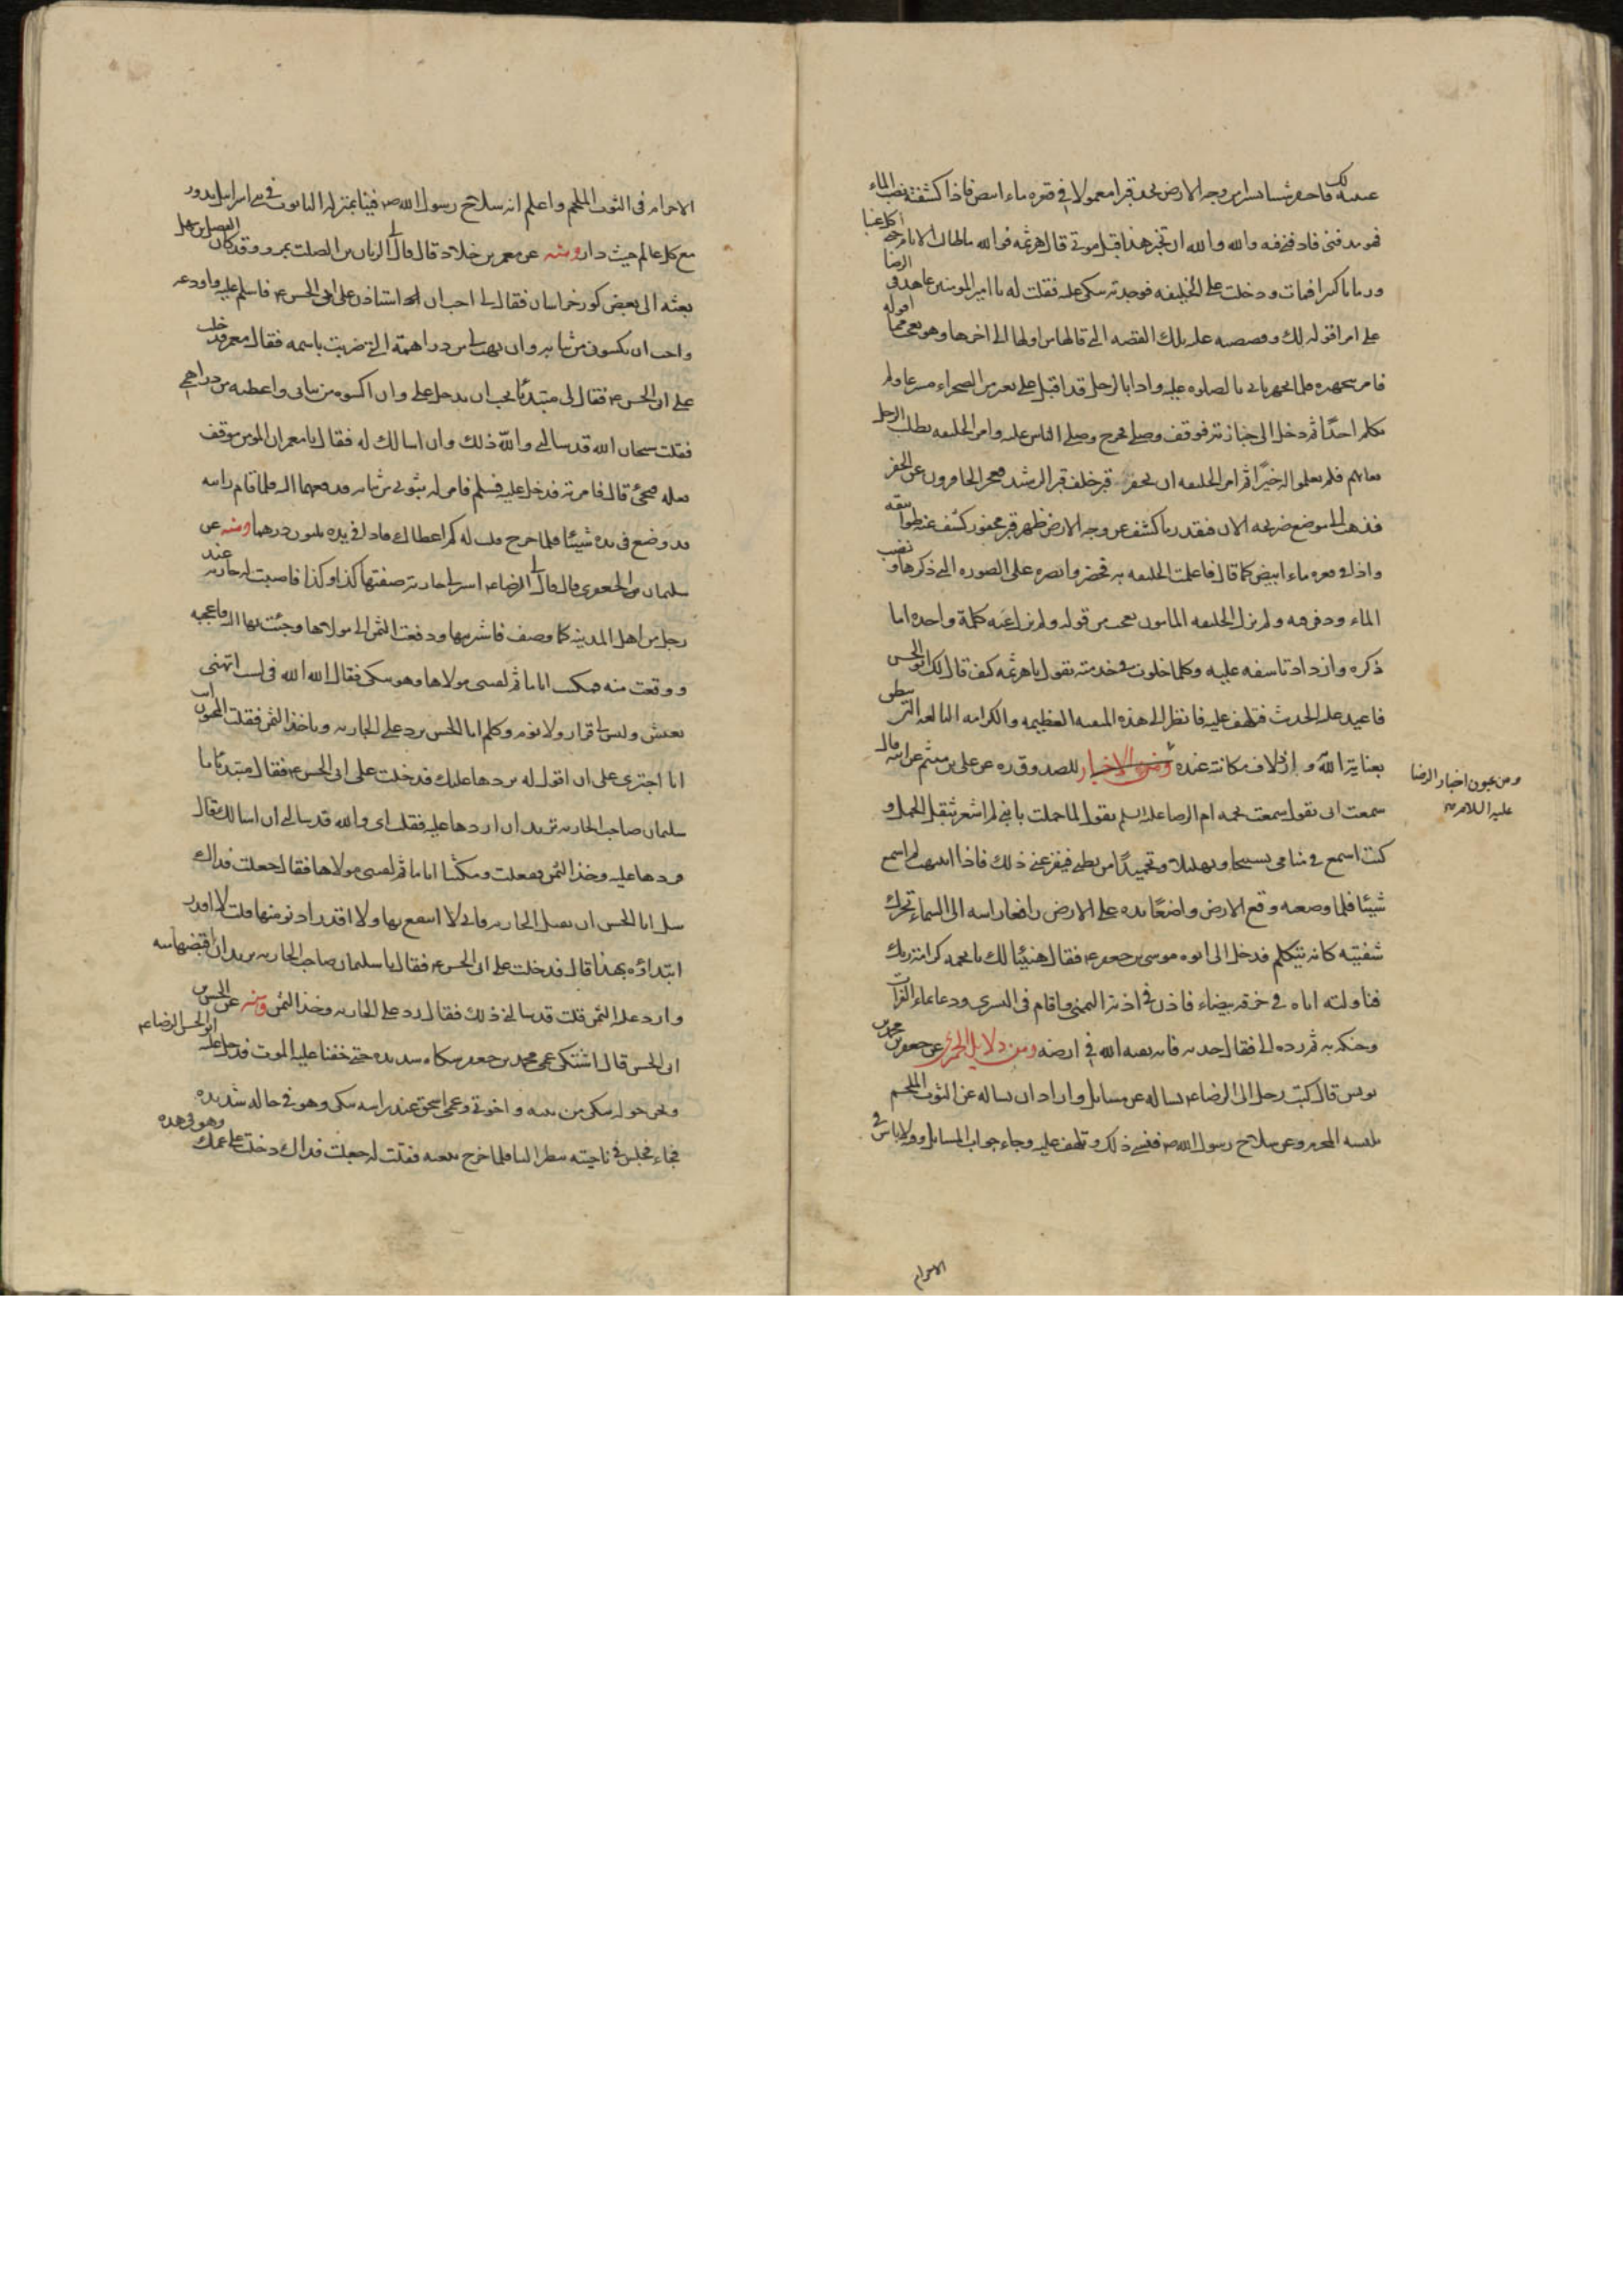 فاحفر شيئا يسيرا من وجه الارض تجد قبرا معمولا في قعره ماء ابيض فاذا كشفته نضب الماء
فهو مدفنى فادفنى فيه والله والله ان تخبر بهذا قبل موتى قال هرثمه فوالله ما طالت الايام حتى اكل عنبا
ورمانا كثيرا فمات ودخلت على الخليفه فوجدته يبكى عليه فقلت له يا امير المومنين عاهدنى الرضا
على امر اقوله لك وقصصت عليه تلك القصه التى قالها من اولها الى اخرها وهو يعجب مما اقوله
فامر بتجهيزه فلما تجهز بالصلوه عليه واذا بالرجل قد اقبل على بعير من الصحراء مسرعا ولم
يكلم احدًا ثم دخل الى جنازته فوقف وصلى فخرج وصلى الناس عليه وامر الخليفه بطلب الرجل
فلم يعلموا له خبرًا ثم امر الخليفه ان يحفر قبر خلف قبر الرشيد فعجز الحافرون عن الحفر
فذهب الى موضع ضريحه الان فبقدر ما كشف عن وجه الارض ظهر قبر محفور كشف عنه طوابيقه
واذا فى قعره ماء ابيض كما قال فاعلمت الخليفه به فحضر وابصره على الصوره التى ذكرها ونضب
الماء ودفن فيه ولم يزل الخليفه المامون يعجب من قوله ولم يزل عنه كلمة واحده
ذكره وازداد تاسفه عليه وكلما خلوت فى خدمته يقول يا هرثمه كيف قال لك ابو الحسن
فاعيد عليه الحديث فيتلهف عليه فانظر الى هذه المنقبه العظيمه والكرامه البالغه التى تنطق
بعناية الله وازلاف مكانته عنده للصدوق ره عن على بن ميثم عن ابيه قال
ومن عيون اخبار الرضا
عليه السلام
سمعت امى تقول سمعت نجمه ام الرضا عليه السلم تقول لما حملت بابنى لم اشعر بثقل الحمل و
كنت اسمع فى منامى تسبيحا وتهليلا وتحميدًا من بطنى فيفزعنى ذلك فاذا انتبهت لم اسمع
شيئا فلما وضعته وقع الارض واضعًا يده على الارض رافعا راسه الى السماء تحرك
شفتيه كانه يتكلم فدخل الى ابوه موسى بن جعفر ع فقال هنيئا لك يا نجمه كرامة ربك
فناولته اياه فى خرقه بيضاء فاذن فى اذنه اليمنى واقام فى اليسرى ودعا بماء الفرات
وحنكه به ثم رده الى فقال خديه فانه بقيه الله فى ارضه ومن دلايل الحميرى عن جعفر بن محمد بن
يونس قال كتب رجل الى الرضا ع يساله عن مسايل واراد ان يساله عن الثوب الملحم
يلبسه المحرم وعن سلاح رسول الله ص فنسى ذلك وتلهف عليه وجاء جواب المسايل وفيه لا باس فى
الاحرام
الاحرام فى الثوب الملحم واعلم ان سلاح رسول الله ص فينا بمنزله التابوت فى بنى اسرايل يدور
مع كل عالم حيث دار ومنه عن معمر بن خلاد قال قال لى الريان بن الصلت بمرو وقد كان الفضل بن سهل
بعثه الى بعض كور خراسان فقال لى احب ان استاذن على ابى الحسن ع فاسلم عليه واودعه
واحب ان يكسونى من ثيابه وان يهب لى من دراهمه التى ضربت باسمه فقال معمر فدخلت
على ابى الحسن ع فقال لى مبتدئا يحب ان يدخل على وان اكسوه من ثيابى واعطيه من دراهمى
فقلت سبحان الله قد سالنى والله ذلك وان اسالك له فقال يا معمر ان المومن موفق
قل له فيجئ قال فامرته فدخل عليه فسلم فامر له بثوبين من ثيابه فدفعهما اليه فلما قام رايته
قد وضع فى يده شيئا فلما خرج قلت له كم اعطاك فاذا فى يده ثلثون درهما ومنه عن
سليمان بن الجعفرى قال قال لى الرضا ع اشتر لى جارية صفتها كذا وكذا فاصبت له جارية عند
رجل من اهل المدينه كما وصف فاشتريتها ودفعت الثمن الى مولاها وجئت بها اليه فاعجبته
ووقعت منه فمكثت اياما ثم لقينى مولاها وهو يبكى فقال الله الله فى لست اتهنى
بعيش وليس لى قرار ولا نوم وكلم ابا الحسن يرد على الجاريه وياخذ الثمن فقلت امجنون انت
انا اجترى على ان اقول له يردها عليك فدخلت على ابى الحسن ع فقال مبتدئا يا
سليمان صاحب الجاريه يريد ان اردها عليه فقلت اى والله قد سالنى ان اسالك قال
فردها عليه وخذ الثمن ففعلت ومكثنا اياما ثم لقينى مولاها فقال جعلت فداك
سل ابا الحسن ان يقبل الجاريه فانى لا انتفع بها ولا اقدر ادنو منها قلت لا اقدر
ابتداؤه بهذا قال فدخلت على ابى الحسن ع فقال يا سليمان صاحب الجاريه يريد ان اقبضها منه
وارد عليه الثمن قلت قد سالنى ذلك فقال رد على الجاريه وخذ الثمن ومنه عن الحسن بن
ابى الحسن قال اشتكى عمى محمد بن جعفر شكاه شديده حتى خفنا عليه الموت فدخل عليه ابو الحسن الرضا ع
ونحن حوله نبكى من بنيه واخوتى وعمى اسحق عند راسه يبكى وهو فى حاله شديده
فجاء فجلس فى ناحيته ينظر الينا فلما خرج تبعته فقلت له جعلت فداك دخلت على عمك وهو فى هذه